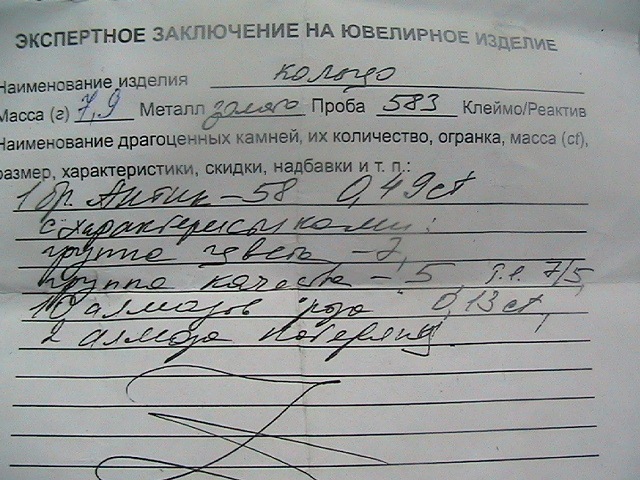 ЭКСПЕРТНОЕ ЗАКЛЮЧЕНИЕ НА ЮВЕЛИРНОЕ ИЗДЕЛИЕ
Наименование изделия кольцо
Масса (г) 7,9 Металл золото Проба 583 Клеймо/Реактив
Наименование драгоценных камней, их количество, огранка, масса (ct),
размер, характеристики, скидки, надбавки и т. п.:
1 бр. Антик-58 0,49ct
с характеристиками:
группа цвета - 7,
группа качества - 5 т.е. 7/5,
10 алмазов "роза" 0,13 ct,
2 алмаза потеряны.